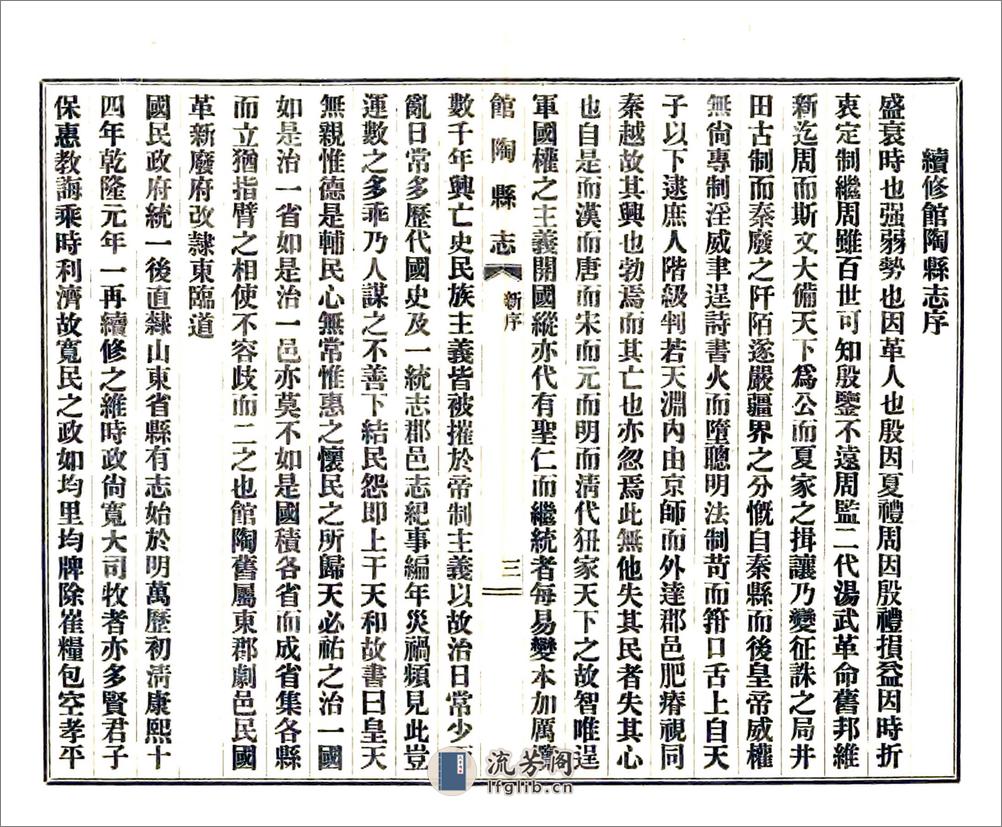 續修館陶縣志序
盛衰時也强弱勢也因革人也殷因夏禮周因殷禮損益因時折
衷定制繼周雖百世可知殷鑒不遠周監二代湯武革命舊邦維
新迄周而斯文大備天下爲公而夏家之揖讓乃變征誅之局井
田古制而秦廢之阡陌遂嚴疆界之分慨自秦縣而後皇帝威權
無尙專制淫威聿逞詩書火而墮聰明法制苛而箝口舌上自天
子以下逮庶人階級判若天淵內由京師而外達郡邑肥瘠視同
秦越故其興也勃焉而其亡也亦忽焉此無他失其民者失其心
也自是而漢而唐而宋而元而明而淸代狃家天下之故智唯逞
軍國權之主義開國縱亦代有聖仁而繼統者每易變本加厲
館陶縣志 新序 三
數千年興亡史民族主義皆被摧於帝制主義以故治日常少
亂日常多歷代國史及一統志郡邑志紀事編年災禍頻見此豈
運數之多乖乃人謀之不善下結民怨卽上干天和故書曰皇天
無親惟德是輔民心無常惟惠之懷民之所歸天必祐之治一國
如是治一省如是治一邑亦莫不如是國積各省而成省集各縣
而立猶指臂之相使不容歧而二之也館陶舊屬東郡劇邑民國
革新廢府改隸東臨道
國民政府統一後直隸山東省縣有志始於明萬歷初淸康熙十
四年乾隆元年一再續修之維時政尙寬大司牧者亦多賢君子
保惠教誨乘時利濟故寬民之政如均里均牌除雀糧包空孝平
流芳阁
lfglib.cn